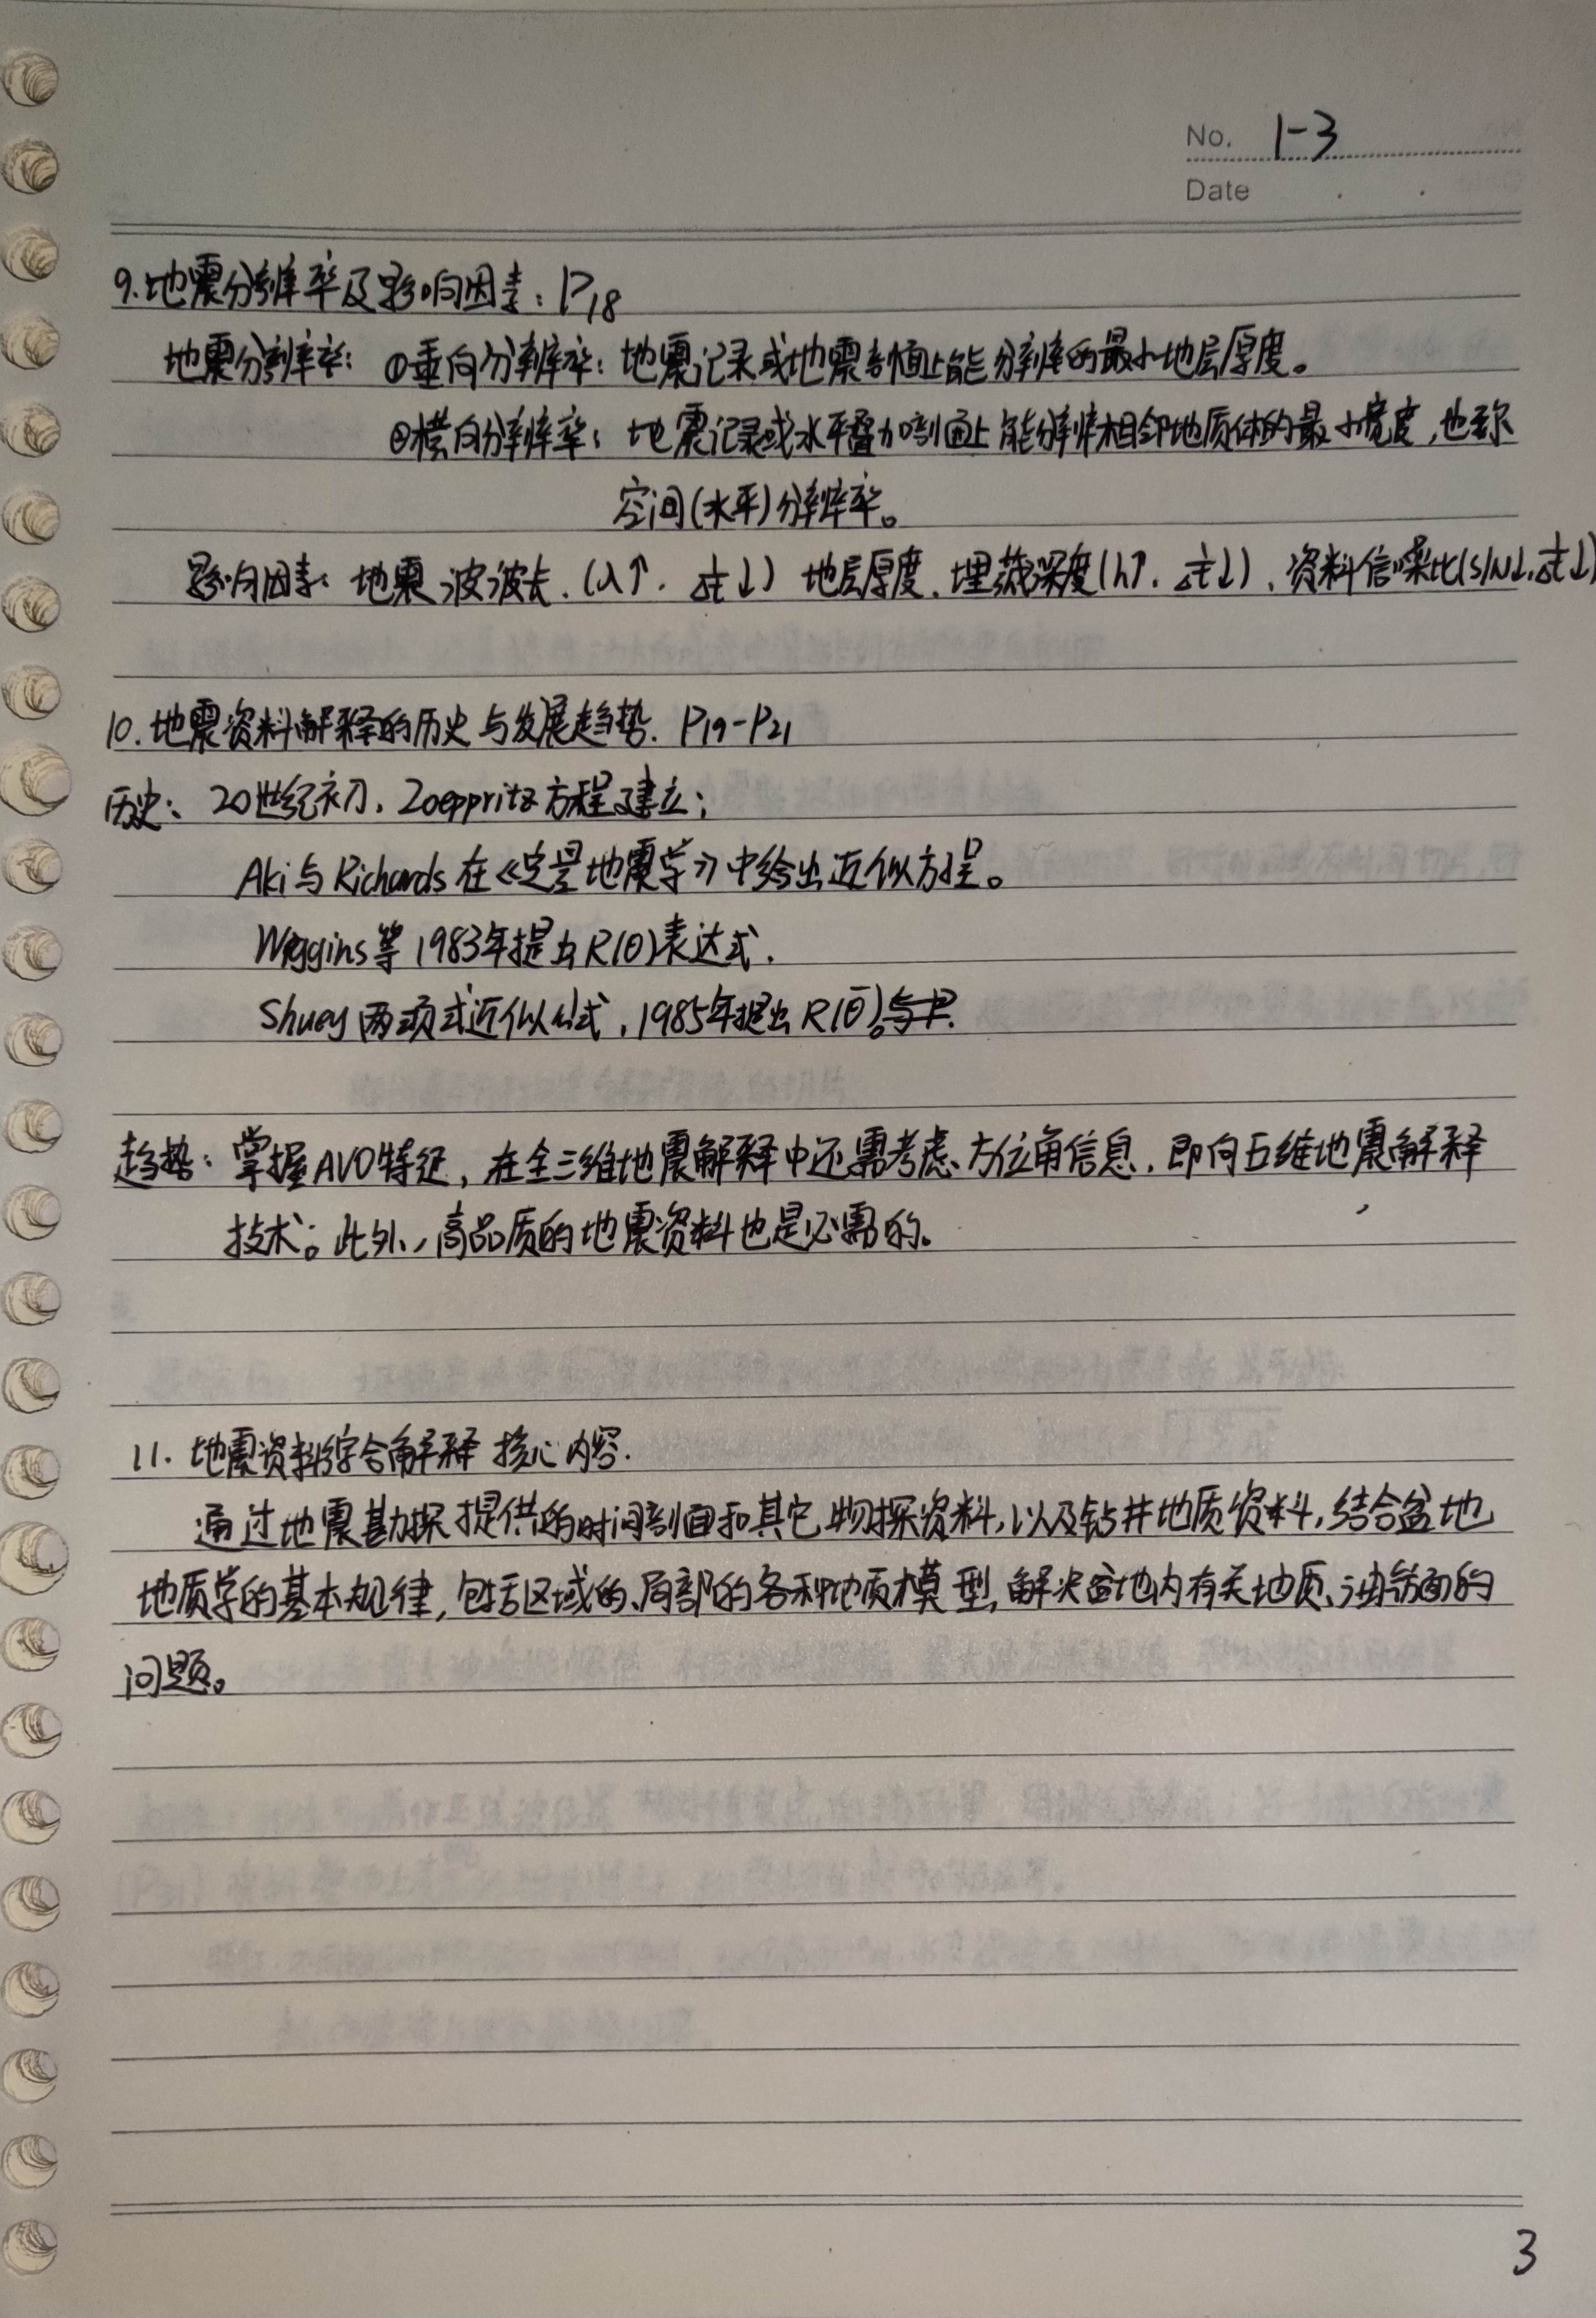 No. 1-3
Date
9.地震分辨率及影响因素：P18
地震分辨率：①垂向分辨率：地震记录或地震剖面上能分辨的最小地层厚度。
②横向分辨率：地震记录或水平叠加剖面上能分辨相邻地质体的最小宽度，也称
空间(水平)分辨率。
影响因素：地震波波长.(λ↑. ↓) 地层厚度.埋藏深度(h↑. ↓)、资料信噪比(S/N↓. ↓)
10.地震资料解释的历史与发展趋势. P19-P21
历史：20世纪初，Zoeppritz方程建立；
Aki与Richards在《定量地震学》中给出近似方程。
Wiggins等1983年提出R(θ)表达式.
Shuey两项式近似公式，1985年提出R(θ)。
趋势：掌握AVO特征，在全三维地震解释中还需考虑方位角信息，即向五维地震解释
技术。此外，高品质的地震资料也是必需的。
11.地震资料综合解释核心内容.
通过地震勘探提供的时间剖面和其它物探资料，以及钻井地质资料，结合盆地
地质学的基本规律，包括区域的、局部的各种地质模型，解决盆地内有关地质、油气方面的
问题。
3